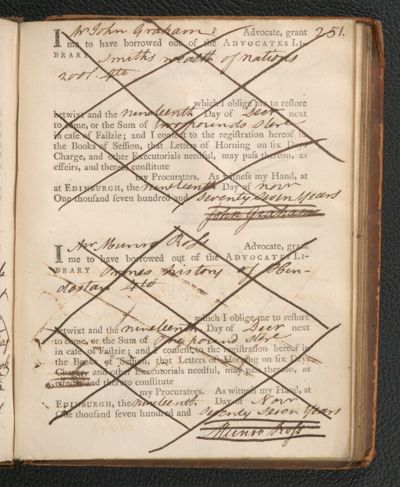 251.
I Mr John Graham Advocate, grant
me to have borrowed out of the ADVOCATES LI-
BRARY Smiths wealth of nations
2 vol. 4to
which I oblige me to restore
betwixt and the nineteenth Day of Decr next
to come, or the Sum of two pounds Ster
in case of Failzie; and I consent to the registration hereof in
the Books of Session, that Letters of Horning on six Days
Charge, and other Executorials needful, may pass thereon, as
effeirs, and thereto constitute
my Procurators. As witness my Hand, at
at EDINBURGH, the nineteenth Day of Novr
One thousand seven hundred and Seventy Seven Years
John Graham
I Mr Munro Ross Advocate, grant
me to have borrowed out of the ADVOCATES LI-
BRARY Ormes history of Hin-
dostan 4to
which I oblige me to restore
betwixt and the nineteenth Day of Decr next
to come, or the Sum of one pound Ster
in case of Failzie; and I consent to the registration hereof in
the Books of Session, that Letters of Horning on six Days
Charge, and other Executorials needful, may pass thereon, as
effeirs, and thereto constitute
my Procurators. As witness my Hand, at
EDINBURGH, the nineteenth Day of Novr
One thousand seven hundred and Seventy Seven Years
Munro Ross